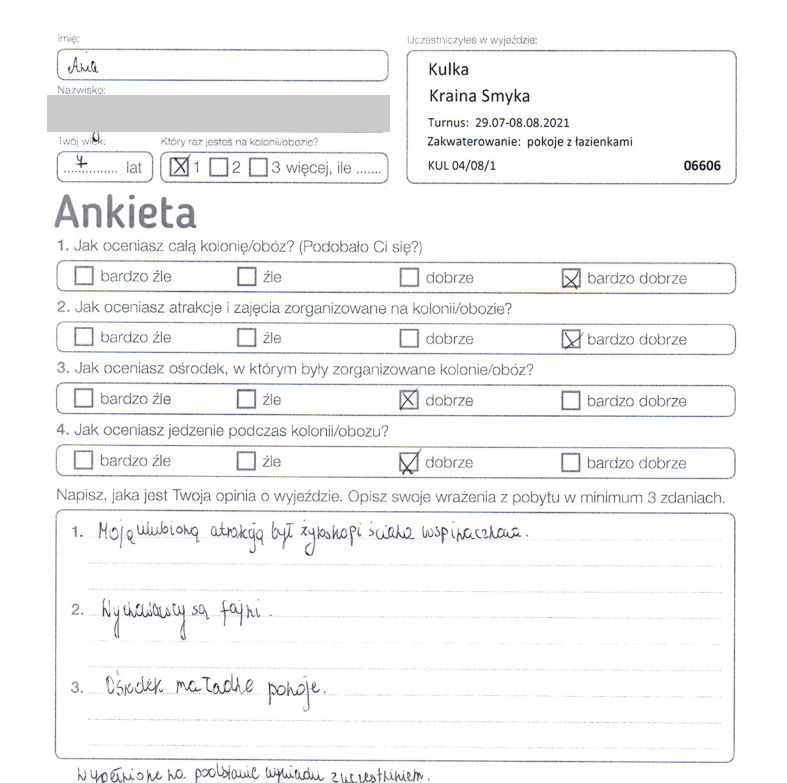 Imię:
Ania
Uczestniczyłeś w wyjeździe:
Kulka
Kraina Smyka
Turnus: 29.07-08.08.2021
Zakwaterowanie: pokoje z łazienkami
KUL 04/08/1 06606
Nazwisko:
Twój wiek:
7 lat
Który raz jesteś na kolonii/obozie?
1 2 3 więcej, ile .......
Ankieta
1. Jak oceniasz całą kolonię/obóz? (Podobało Ci się?)
bardzo źle źle dobrze bardzo dobrze
2. Jak oceniasz atrakcje i zajęcia zorganizowane na kolonii/obozie?
bardzo źle źle dobrze bardzo dobrze
3. Jak oceniasz ośrodek, w którym były zorganizowane kolonie/obóz?
bardzo źle źle dobrze bardzo dobrze
4. Jak oceniasz jedzenie podczas kolonii/obozu?
bardzo źle źle dobrze bardzo dobrze
Napisz, jaka jest Twoja opinia o wyjeździe. Opisz swoje wrażenia z pobytu w minimum 3 zdaniach.
1. Moją ulubioną atrakcją był żyroskop i ściana wspinaczkowa.
2. Wychowawcy są fajni.
3. Ośrodek ma ładne pokoje.
Wypełnione na podstawie wywiadu z uczestnikiem.